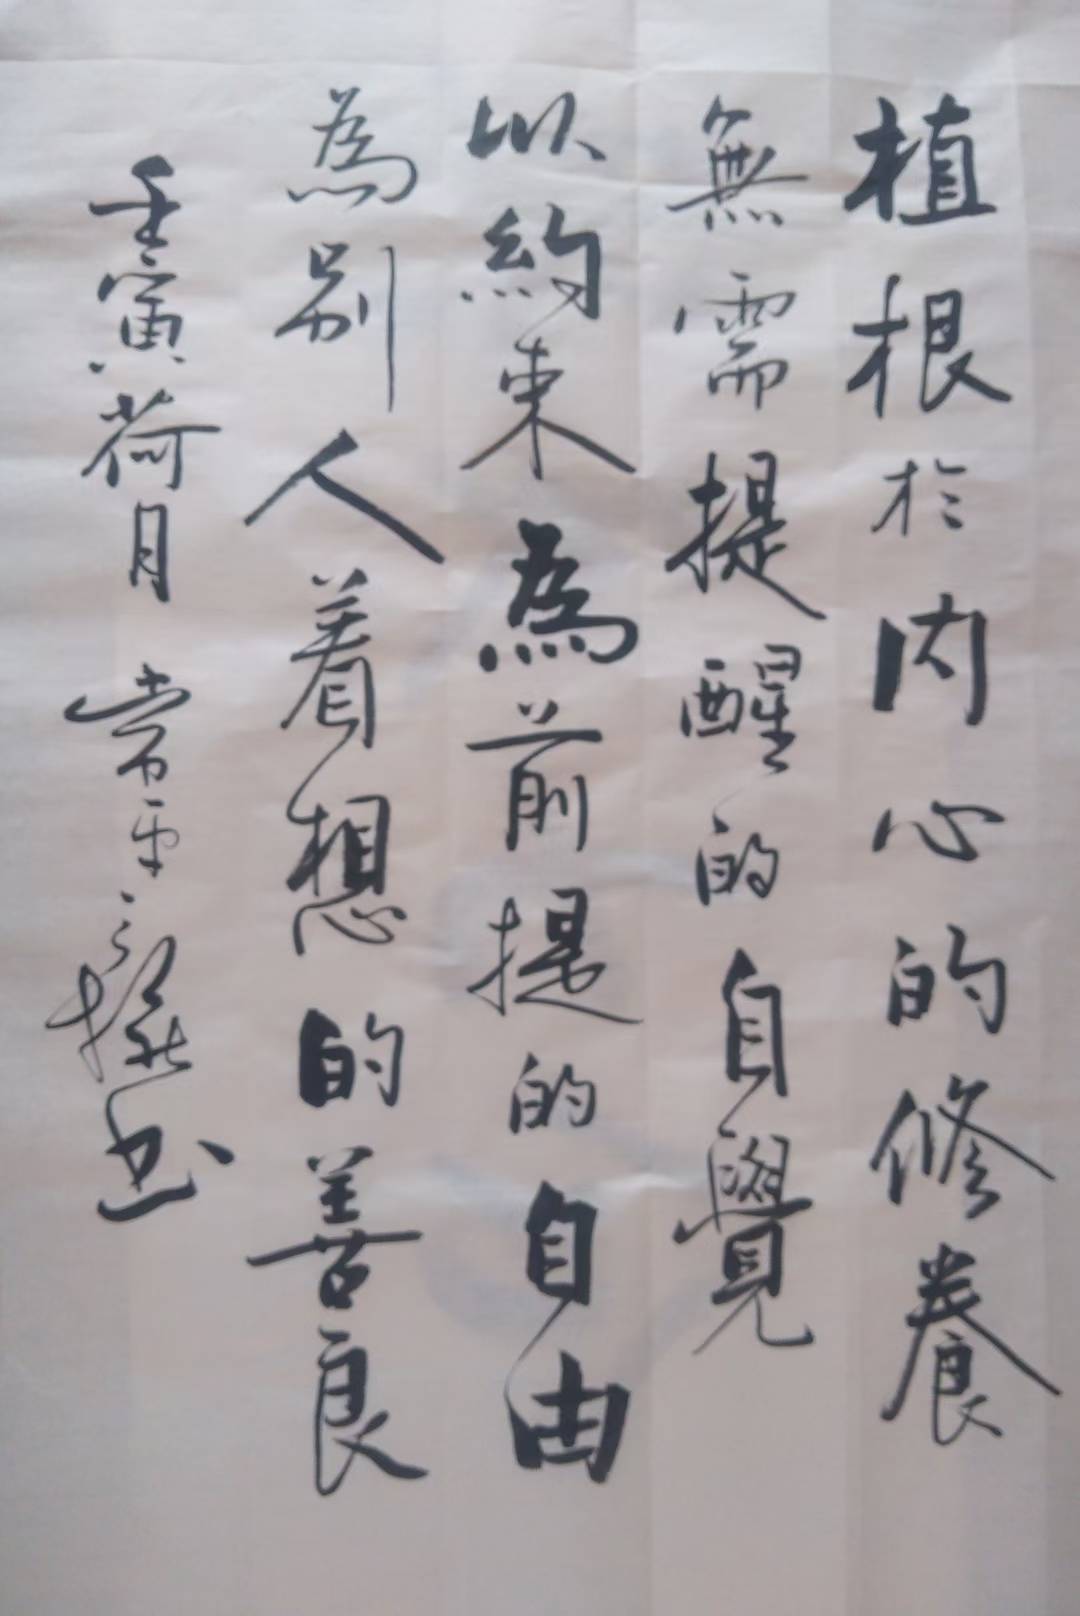 植根於内心的修養
無需提醒的自覺
以約束為前提的自由
為別人着想的善良
壬寅荷月 常平 書